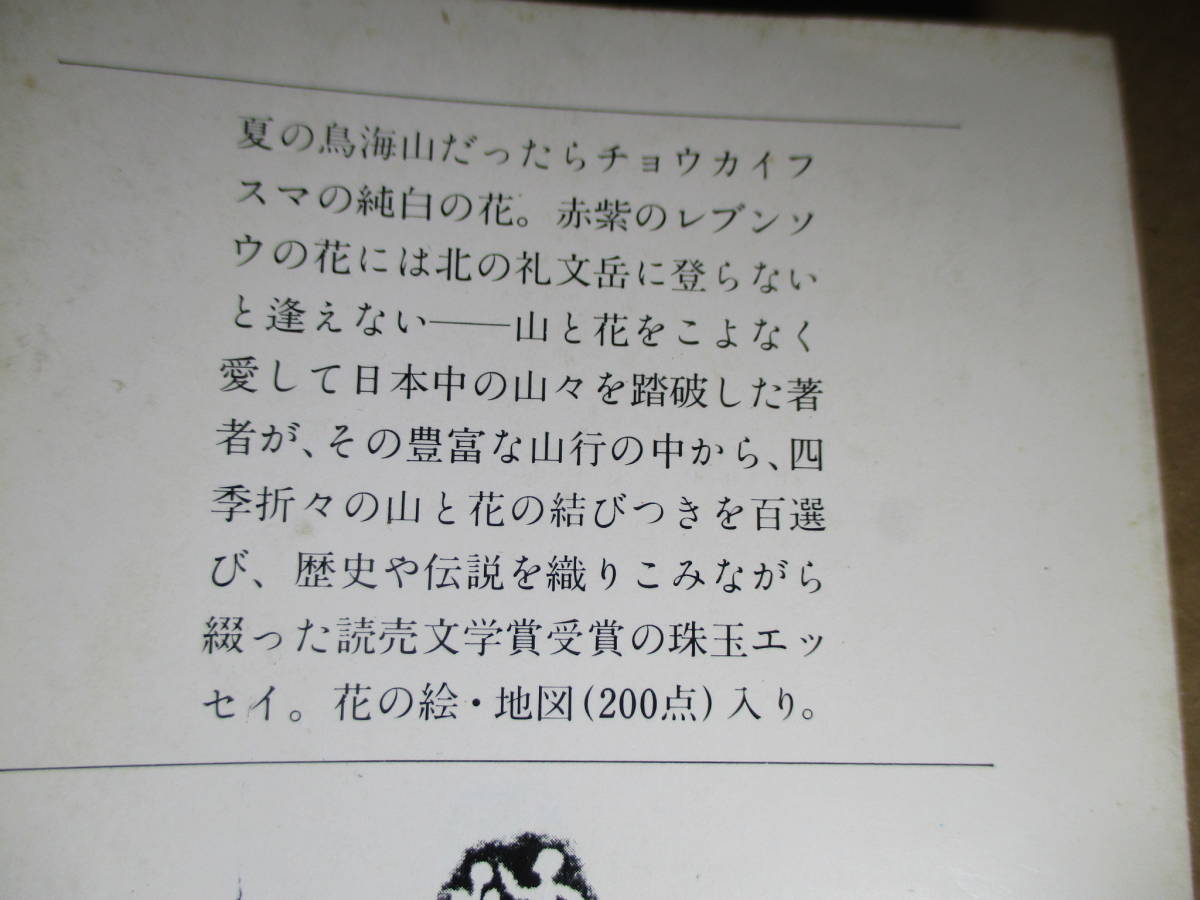 夏の鳥海山だったらチョウカイフ
スマの純白の花。赤紫のレブンソ
ウの花には北の礼文岳に登らない
と逢えない――山と花をこよなく
愛して日本中の山々を踏破した著
者が、その豊富な山行の中から、四
季折々の山と花の結びつきを百選
び、歴史や伝説を織りこみながら
綴った読売文学賞受賞の珠玉エッ
セイ。花の絵・地図(200点)入り。